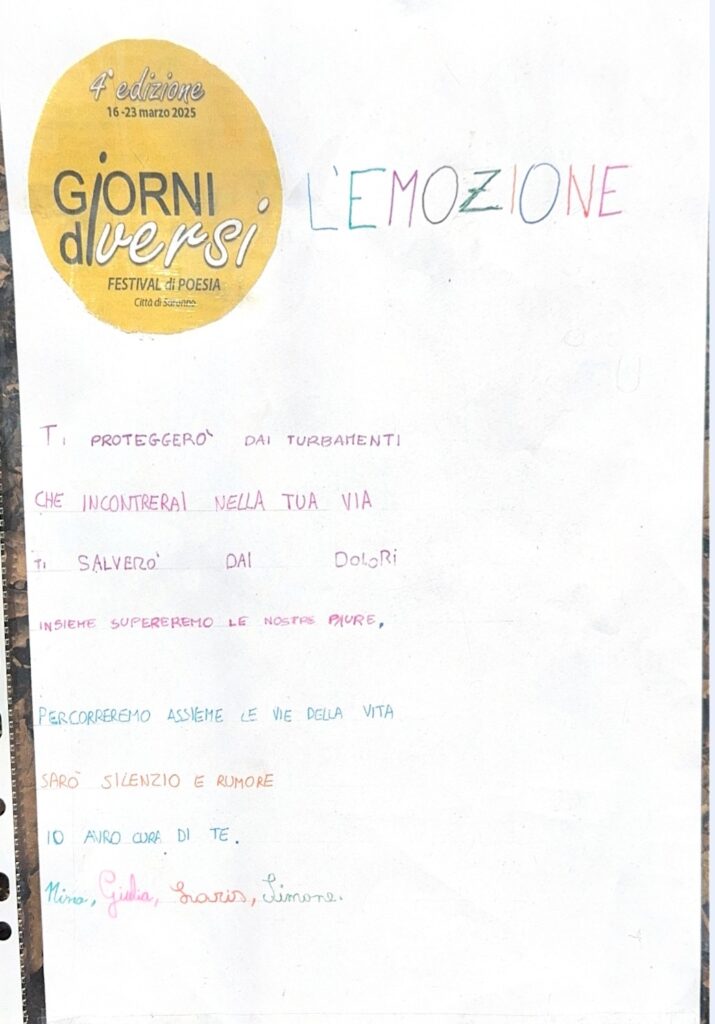 4ª edizione
16-23 marzo 2025
GiORNI
diversi
FESTIVAL di POESIA
Città di Saronno
L'EMOZIONE
TI PROTEGGERO' DAI TURBAMENTI
CHE INCONTRERAI NELLA TUA VIA
TI SALVERO' DAI DOLORI
INSIEME SUPEREREMO LE NOSTRE PAURE,
PERCORREREMO ASSIEME LE VIE DELLA VITA
SARO' SILENZIO E RUMORE
IO AVRO CURA DI TE.
Nina, Giulia, Isaris, Simone.